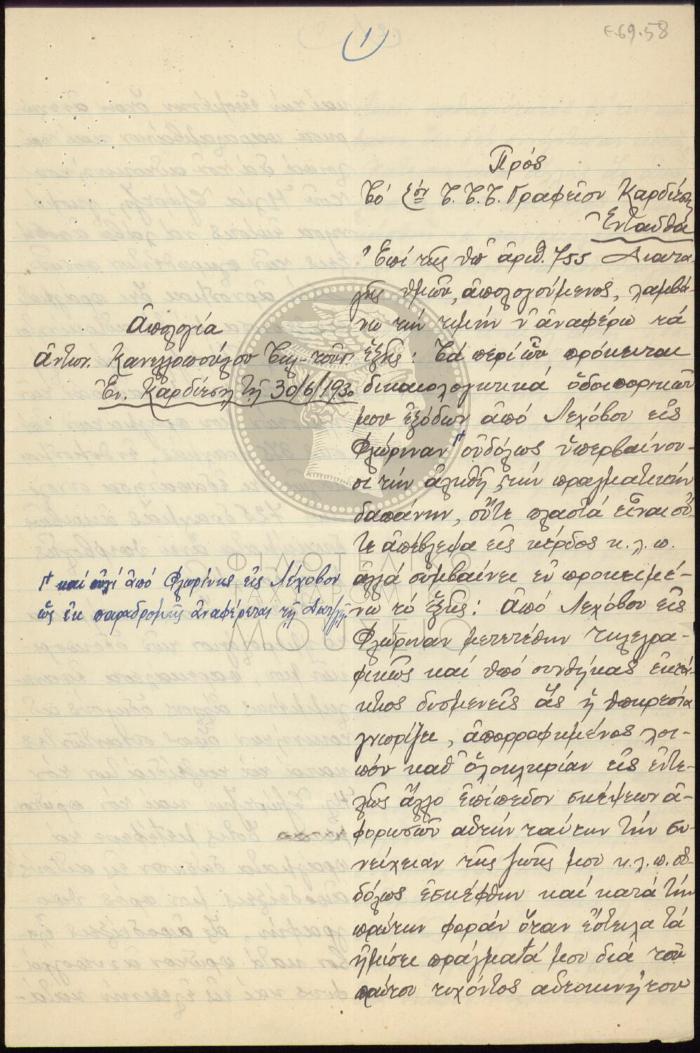 1
ε.69.58
Πρός
Τό Σόν Τ.Τ.Τ. Γραφεῖον Καρδίτσης
Ἐνταῦθα
Ἀπολογία
Ἀντων. Κανελλοπούλου
Ἐν Καρδίτσῃ τῇ 30/6/1930
Ἐπί τῆς ὑπ' ἀριθ. 755 Διατα-
γῆς ὑμῶν, ἀπολογούμενος, λαμβά-
νω τήν τιμήν ν' ἀναφέρω τά
ἑξῆς: Τά περί ὧν πρόκειται
δικαιολογητικά ὁδοιπορικῶν
μου ἐξόδων ἀπό Λεχόβου εἰς
Φλώριναν οὐδόλως ὑπερβαίνου-
σι τήν ἀληθῆ, τήν πραγματικήν
δαπάνην, οὔτε πλαστά εἶναι οὔ-
τε ἀπέβλεψα εἰς κέρδος κ.λ.π.
ἀλλά συμβαίνει ἐν προκειμέ-
νῳ τό ἑξῆς: Ἀπό Λεχόβου εἰς
Φλώριναν μετετέθην τηλεγρα-
φικῶς καί ὑπό συνθήκας ἐκτά-
κτως δυσμενεῖς ἅς ἡ ὑπηρεσία
γνωρίζει, ἀπορροφημένος λοι-
πόν καθ' ὁλοκληρίαν εἰς ἐντε-
λῶς ἄλλο ἐπίπεδον σκέψεων ἀ-
φορωσῶν αὐτήν ταύτην τήν συ-
νέχειαν τῆς ζωῆς μου κ.λ.π. οὐ-
δόλως ἐσκέφθην καί κατά τήν
πρώτην φοράν ὅταν ἔστειλα τά
ἡμίση πράγματά μου διά τοῦ
πρώτου τυχόντος αὐτοκινήτου
καί οὐχί ἀπό Φλωρίνης εἰς Λέχοβον
ὡς ἐκ παραδρομῆς ἀναφέρεται τῇ
ΦΙΛΟΤΕΛΙΚΟ
ΜΟΥΣΕΙΟ